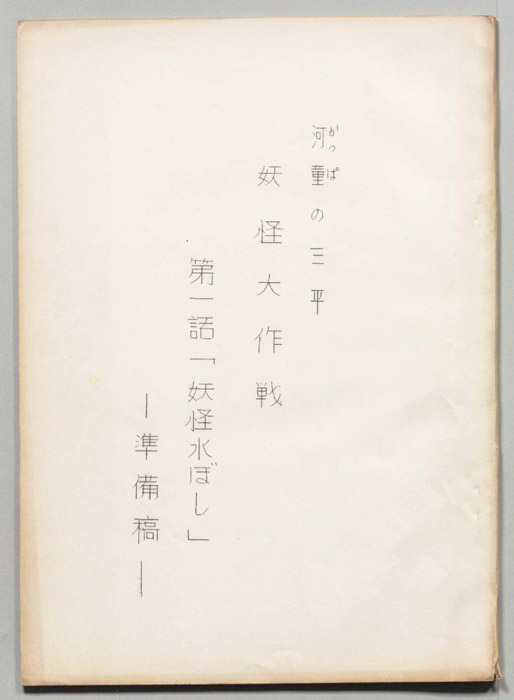 河童の三平
かっぱ
妖怪大作戦
第一話「妖怪水ぼし」
―準備稿―